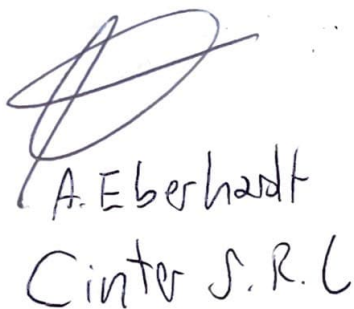 A. Eberhardt
Cinter S.R.L